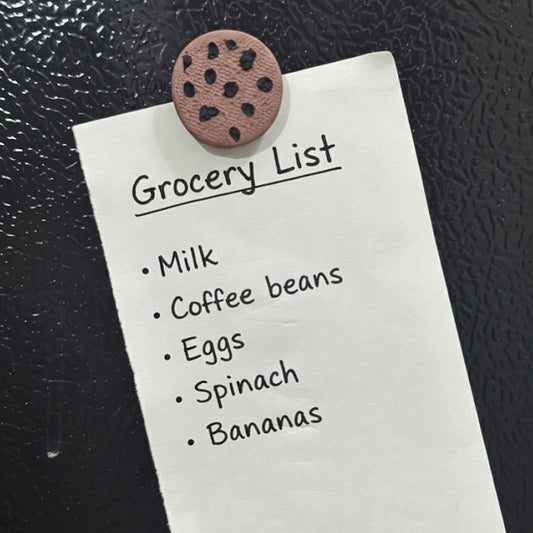 Grocery List
• Milk
• Coffee beans
• Eggs
• Spinach
• Bananas